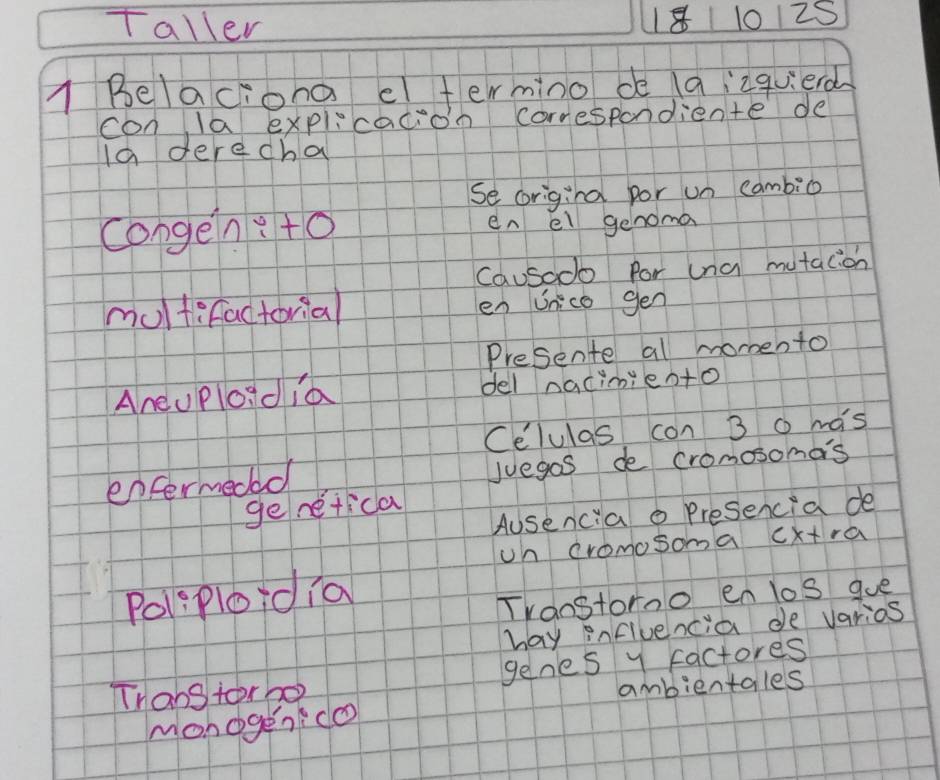 Taller
18 | 10 | 25
1 Relaciona el termino de la izquierda
con la explicación correspondiente de
la derecha
Se origina por un cambio
en el genoma
Congénito
Causado por una mutación
en único gen
multifactorial
Presente al momento
del nacimiento
Aneuploidía
Células con 3 o más
juegos de cromosomás
enfermedad
genética
Ausencia o presencia de
un cromosoma extra
Poliploidía
Transtorno en los que
hay influencia de varios
genes y factores
ambientales
Transtorno
monogénico